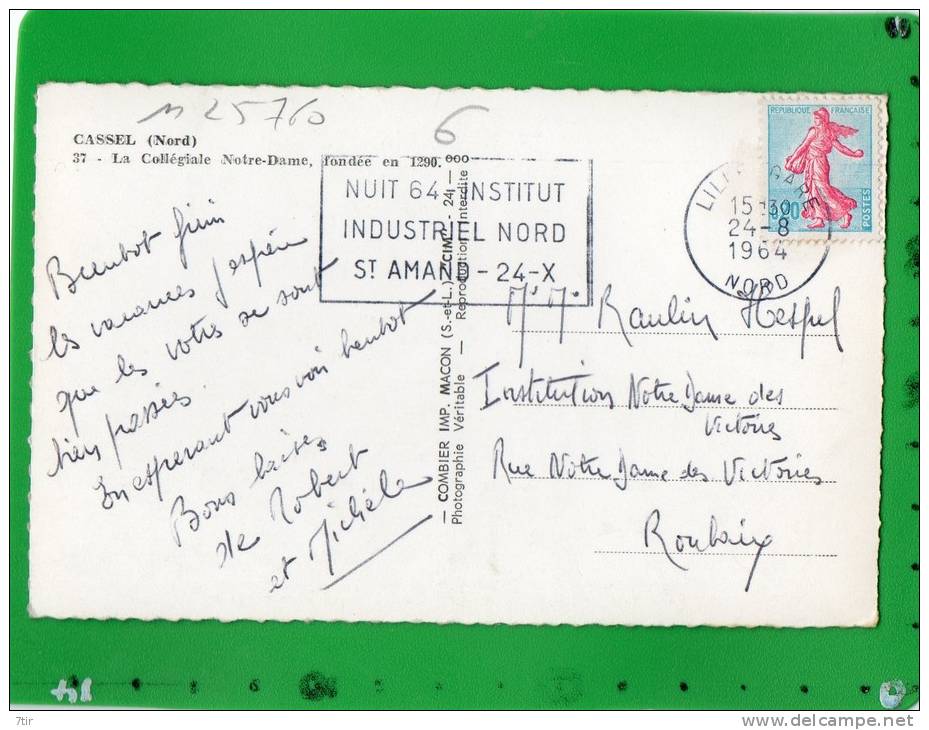 n 25760
6
CASSEL (Nord)
37 - La Collégiale Notre-Dame, fondée en 1290.
NUIT 64 INSTITUT
INDUSTRIEL NORD
ST AMAND - 24-X
REPUBLIQUE FRANÇAISE
0,20
POSTES
LILLE GARE
15-30
24-8
1964
NORD
Bientot fini
les vacances j'espère
que les votres se sont
bien passées
En esperant vous voir bientot
Bons baisers
de Robert
et Michèle
— COMBIER IMP. MACON (S.-et-L.) CIM - 24 —
Photographie Véritable — Reproduction Interdite
Raulin Hespel
Institution Notre Dame des
Victoires
Rue Notre Dame des Victoires
Roubaix
7tir
delcampe.net